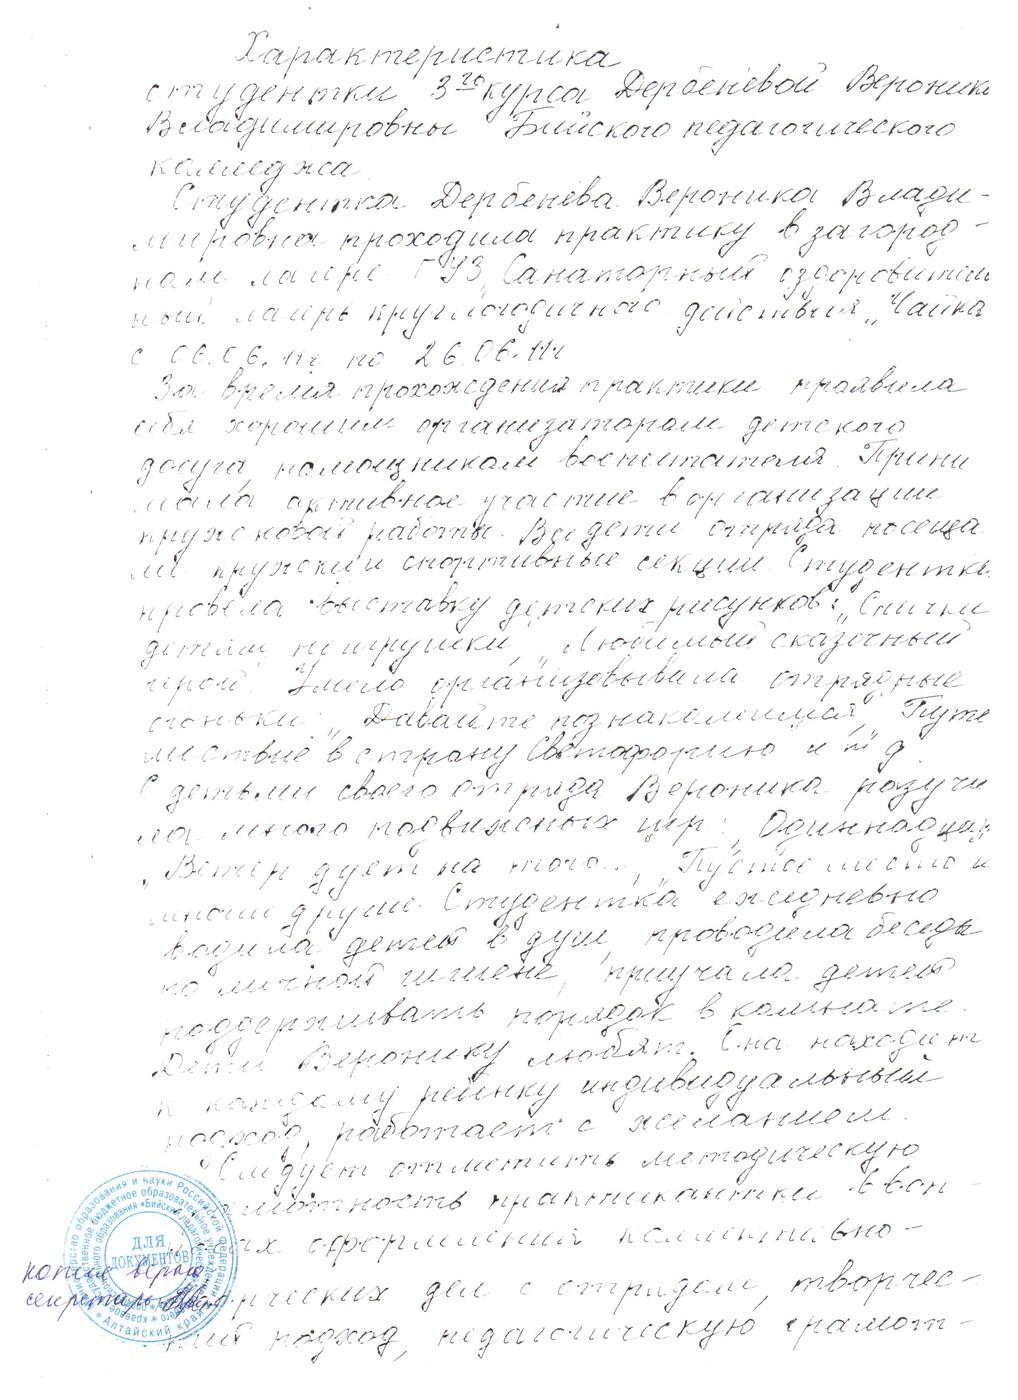 Характеристика
студентки 3го курса Дербенёвой Вероники
Владимировны Бийского педагогического
колледжа
Студентка Дербенёва Вероника Влади-
мировна проходила практику в загород-
ном лагере ГУЗ „Санаторный оздоровитель
ный лагерь круглогодичного действия „Чайка
с 06.06.11г по 26.06.11г
За время прохождения практики проявила
себя хорошим организатором детского
досуга, помощником воспитателя. Прини
мала активное участие в организации
кружковой работы. Все дети отряда посеща
ли кружки и спортивные секции. Студентка
провела выставку детских рисунков: „Спички
детям не игрушки", „Любимый сказочный
герой". Умело организовывала отрядные
огоньки: „Давайте познакомимся", „Путе
шествие в страну Светофорию" и т д
С детьми своего отряда Вероника разучи
ла много подвижных игр: „Одиннадцать"
„Ветер дует на того...", „Пустое место" и
многие другие. Студентка ежедневно
водила детей в душ, проводила беседы
по личной гигиене, приучала детей
поддерживать порядок в комнате.
Дети Веронику любят. Она находит
к каждому ребёнку индивидуальный
подход, работает с желанием.
Следует отметить методическую
грамотность практикантки в воп-
росах оформления коллективно-
творческих дел с отрядом, творчес-
кий подход, педагогическую грамот-
копия верна
секретарь
ДЛЯ
ДОКУМЕНТОВ
Алтайский край